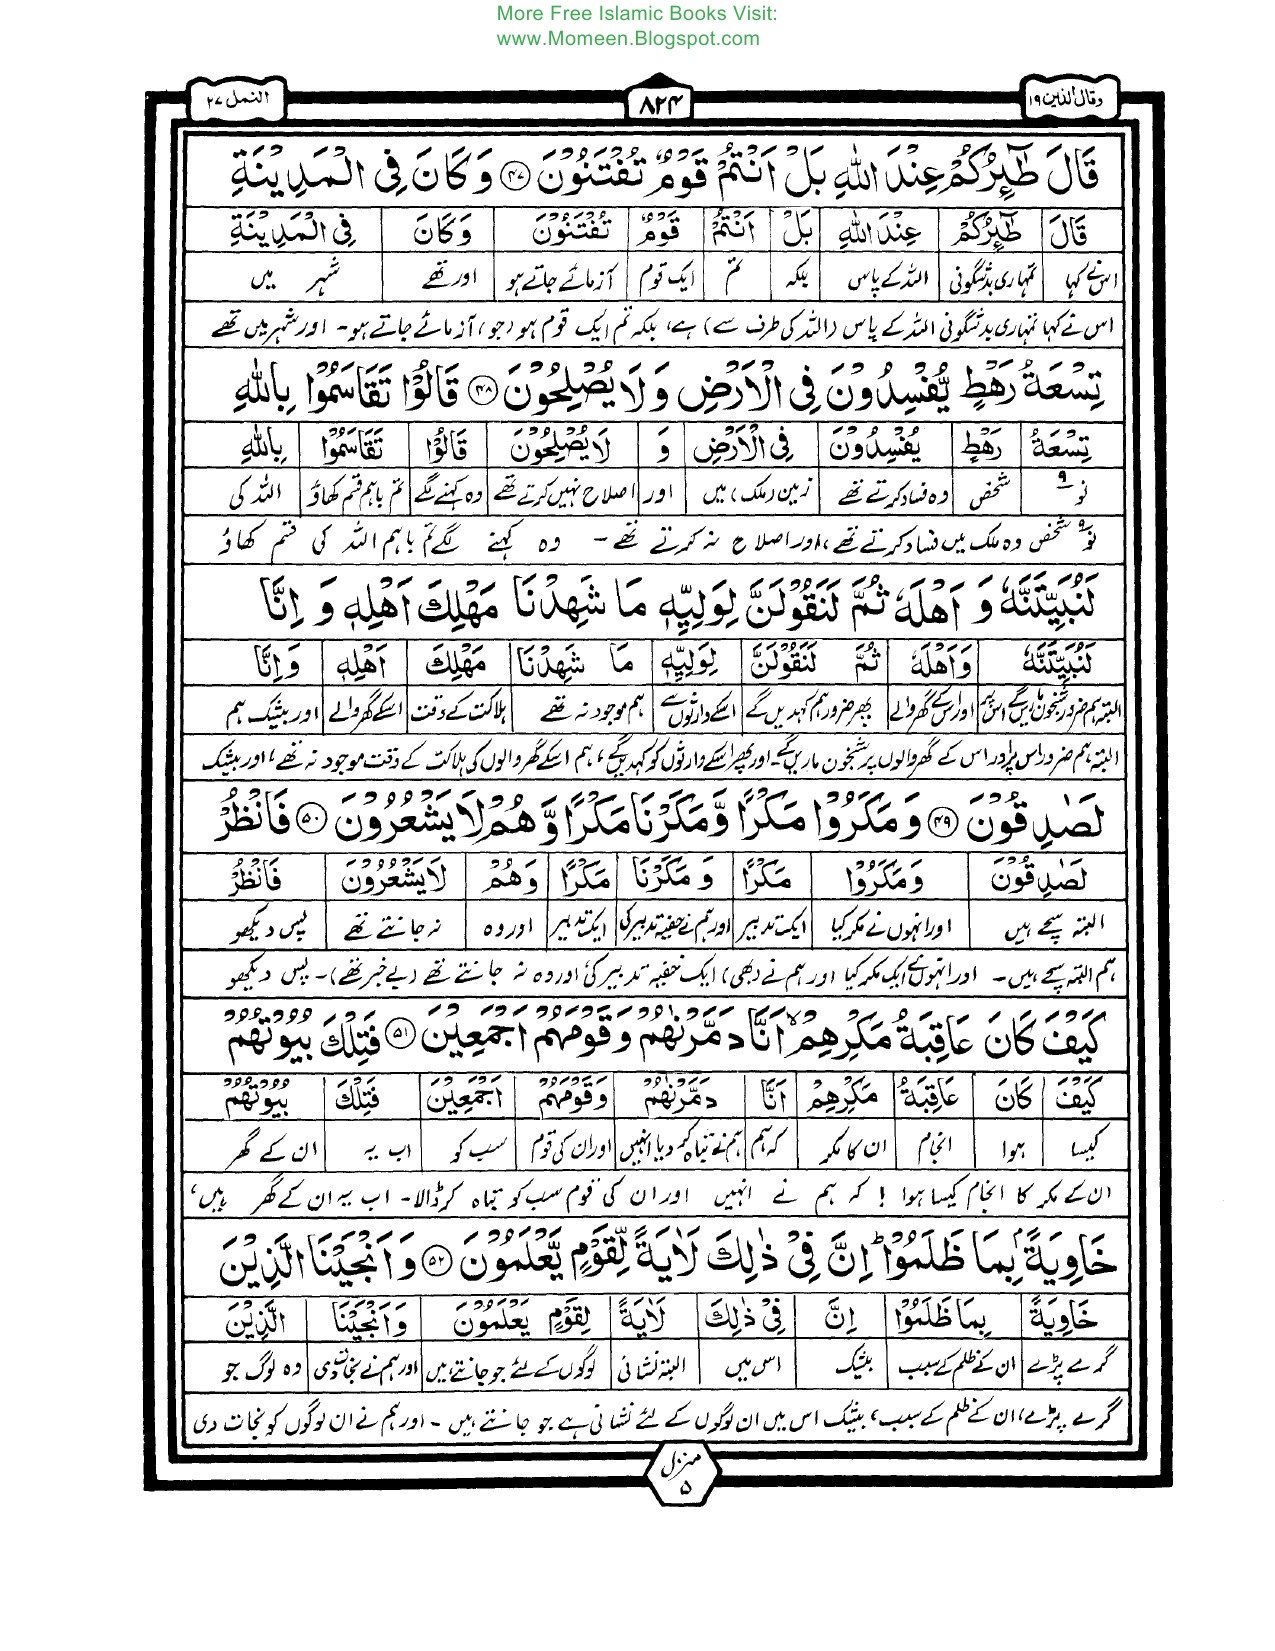 More Free Islamic Books Visit:
www.Momeen.Blogspot.com
وقال الذين ۱۹
۸۲۴
النمل ۲۷
قَالَ طٰٓئِرُكُمْ عِنْدَ اللّٰهِ بَلْ اَنْتُمْ قَوْمٌ تُفْتَنُوْنَ ۴۷ وَكَانَ فِی الْمَدِیْنَةِ
قَالَ طٰٓئِرُكُمْ عِنْدَ اللّٰهِ بَلْ اَنْتُمْ قَوْمٌ تُفْتَنُوْنَ وَكَانَ فِی الْمَدِیْنَةِ
اس نے کہا تمہاری بدشگونی اللہ کے پاس بلکہ تم ایک قوم آزمائے جاتے ہو اور تھے شہر میں
اس نے کہا تمہاری بدشگونی اللہ کے پاس (اللہ کی طرف سے) ہے، بلکہ تم ایک قوم ہو (جو) آزمائے جاتے ہو۔ اور شہر میں تھے
تِسْعَةُ رَهْطٍ یُّفْسِدُوْنَ فِی الْاَرْضِ وَلَا یُصْلِحُوْنَ ۴۸ قَالُوْا تَقَاسَمُوْا بِاللّٰهِ
تِسْعَةُ رَهْطٍ یُفْسِدُوْنَ فِی الْاَرْضِ وَ لَا یُصْلِحُوْنَ قَالُوْا تَقَاسَمُوْا بِاللّٰهِ
نو ۹ شخص وہ فساد کرتے تھے زمین (ملک) میں اور اصلاح نہیں کرتے تھے وہ کہنے لگے تم باہم قسم کھاؤ اللہ کی
نو ۹ شخص وہ ملک میں فساد کرتے تھے، اور اصلاح نہ کرتے تھے۔ وہ کہنے لگے تم باہم اللہ کی قسم کھاؤ
لَنُبَیِّتَنَّهٗ وَ اَهْلَهٗ ثُمَّ لَنَقُوْلَنَّ لِوَلِیِّهٖ مَا شَهِدْنَا مَهْلِكَ اَهْلِهٖ وَ اِنَّا
لَنُبَیِّتَنَّهٗ وَاَهْلَهٗ ثُمَّ لَنَقُوْلَنَّ لِوَلِیِّهٖ مَا شَهِدْنَا مَهْلِكَ اَهْلِهٖ وَاِنَّا
البتہ ہم ضرور شبخون ماریں گے اس پر اور اس کے گھر والے پھر ضرور ہم کہدیں گے اسکے وارثوں سے ہم موجود نہ تھے ہلاکت کے وقت اسکے گھر والے اور بیشک ہم
البتہ ہم ضرور اس پر اور اس کے گھر والوں پر شبخون ماریں گے۔ اور پھر اسکے وارثوں کو کہدیں گے، ہم اسکے گھر والوں کی ہلاکت کے وقت موجود نہ تھے، اور بیشک
لَصٰدِقُوْنَ ۴۹ وَمَكَرُوْا مَكْرًا وَّمَكَرْنَا مَكْرًا وَّهُمْ لَا یَشْعُرُوْنَ ۵۰ فَانْظُرْ
لَصٰدِقُوْنَ وَمَكَرُوْا مَكْرًا وَمَكَرْنَا مَكْرًا وَهُمْ لَا یَشْعُرُوْنَ فَانْظُرْ
البتہ سچے ہیں اور انہوں نے مکر کیا ایک تدبیر اور ہم نے خفیہ تدبیر کی ایک تدبیر اور وہ نہ جانتے تھے پس دیکھو
ہم البتہ سچے ہیں۔ اور انہوں نے ایک مکر کیا اور ہم نے (بھی) ایک خفیہ تدبیر کی اور وہ نہ جانتے تھے (بے خبر تھے)۔ پس دیکھو
كَیْفَ كَانَ عَاقِبَةُ مَكْرِهِمْ لا اَنَّا دَمَّرْنٰهُمْ وَقَوْمَهُمْ اَجْمَعِیْنَ ۵۱ فَتِلْكَ بُیُوْتُهُمْ
كَیْفَ كَانَ عَاقِبَةُ مَكْرِهِمْ اَنَّا دَمَّرْنٰهُمْ وَقَوْمَهُمْ اَجْمَعِیْنَ فَتِلْكَ بُیُوْتُهُمْ
کیسا ہوا انجام ان کا مکر کہ ہم ہم نے تباہ کر دیا انہیں اور ان کی قوم سب کو اب یہ ان کے گھر
ان کے مکر کا انجام کیسا ہوا! کہ ہم نے انہیں اور ان کی قوم سب کو تباہ کر ڈالا۔ اب یہ ان کے گھر ہیں،
خَاوِیَةًۢ بِمَا ظَلَمُوْا ط اِنَّ فِیْ ذٰلِكَ لَاٰیَةً لِّقَوْمٍ یَّعْلَمُوْنَ ۵۲ وَاَنْجَیْنَا الَّذِیْنَ
خَاوِیَةً بِمَا ظَلَمُوْا اِنَّ فِیْ ذٰلِكَ لَاٰیَةً لِقَوْمٍ یَعْلَمُوْنَ وَاَنْجَیْنَا الَّذِیْنَ
گرے پڑے ان کے ظلم کے سبب بیشک اس میں البتہ نشانی لوگوں کے لئے جو جانتے ہیں اور ہم نے نجات دی وہ لوگ جو
گرے پڑے، ان کے ظلم کے سبب، بیشک اس میں ان لوگوں کے لئے نشانی ہے جو جانتے ہیں۔ اور ہم نے ان لوگوں کو نجات دی
منزل ۵